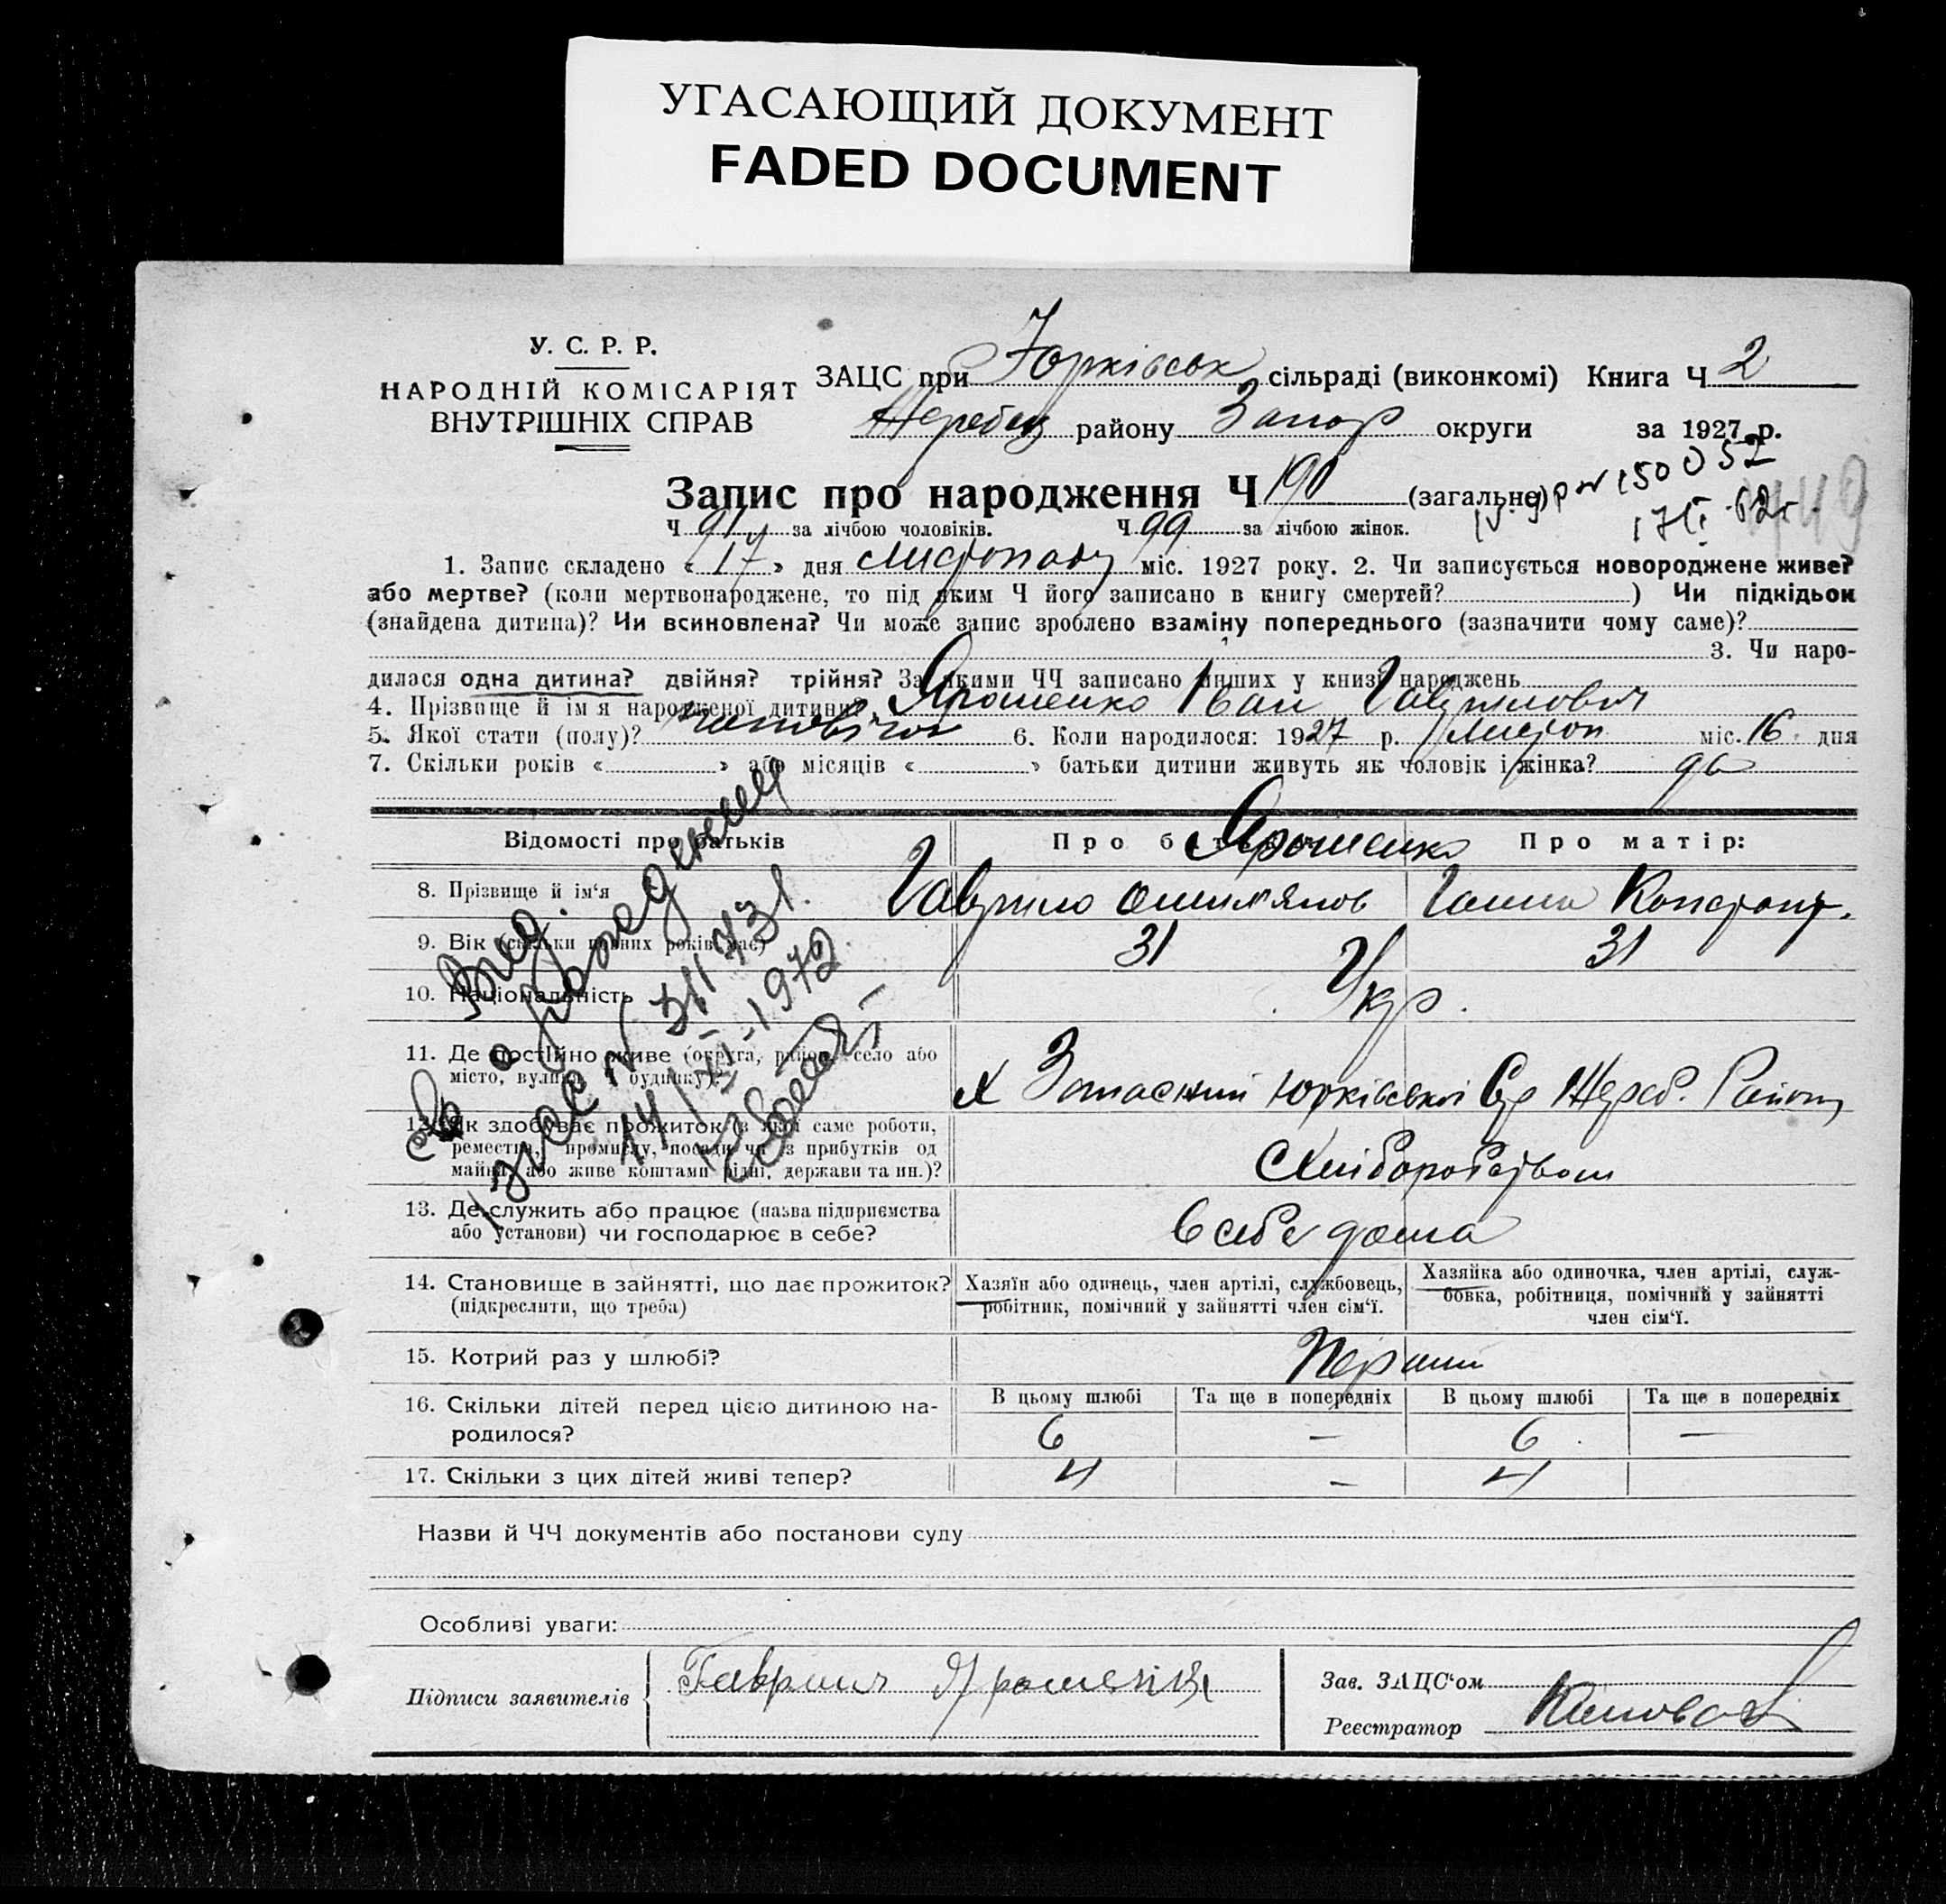 УГАСАЮЩИЙ ДОКУМЕНТ
FADED DOCUMENT
У. С. Р. Р.
НАРОДНІЙ КОМІСАРІЯТ
ВНУТРІШНІХ СПРАВ
ЗАЦС при Юрківськ сільраді (виконкомі) Книга Ч 2
Жеребец району Запор округи за 1927 р.
Запис про народження Ч 190 (загальне)
150052
Ч 91 за лічбою чоловіків. Ч 99 за лічбою жінок.
1. Запис складено « 17 » дня листопаду міс. 1927 року. 2. Чи записується новороджене живе?
або мертве? (коли мертвонароджене, то під яким Ч його записано в книгу смертей? ) Чи підкідьок
(знайдена дитина)? Чи всиновлена? Чи може запис зроблено взаміну попереднього (зазначити чому саме)?
3. Чи наро-
дилася одна дитина? двійня? трійня? За якими ЧЧ записано инших у книзі народжень
4. Прізвище й імя народженої дитини? Ярошенко Іван Гаврилович
5. Якої стати (полу)? чоловічої 6. Коли народилося: 1927 р. Листоп міс. 16 дня
7. Скільки років « » або місяців « » батьки дитини живуть як чоловік і жінка?
Відомості про батьків Про батька Про матір:
Ярошенко
8. Прізвище й ім‘я Гаврило Ганна
9. Вік (скільки повних років має) 31 31
10. Національність Укр.
11. Де постійно живе (округа, район, село або
місто, вулиця, Ч будинку)?
х Запасний Юрківської С/р Жереб. Району
12. Як здобуває прожиток (з якої саме роботи,
ремества, промислу, посади чи з прибутків од
майна, або живе коштами рідні, держави та ин.)?
Хліборобством
13. Де служить або працює (назва підприємства
або установи) чи господарює в себе?
в себе дома
14. Становище в зайнятті, що дає прожиток?
(підкреслити, що треба)
Хазяїн або одинець, член артілі, службовець,
робітник, помічний у зайнятті член сім‘ї.
Хазяйка або одиночка, член артілі, служ-
бовка, робітниця, помічний у зайнятті
член сім‘ї.
15. Котрий раз у шлюбі? Перший
16. Скільки дітей перед цією дитиною на-
родилося?
В цьому шлюбі Та ще в попередніх В цьому шлюбі Та ще в попередніх
6 — 6 —
17. Скільки з цих дітей живі тепер? 4 — 4
Св о рождении
Назви й ЧЧ документів або постанови суду
Особливі уваги:
Підписи заявителів
Ярошенко
Зав. ЗАЦС‘ом
Реєстратор